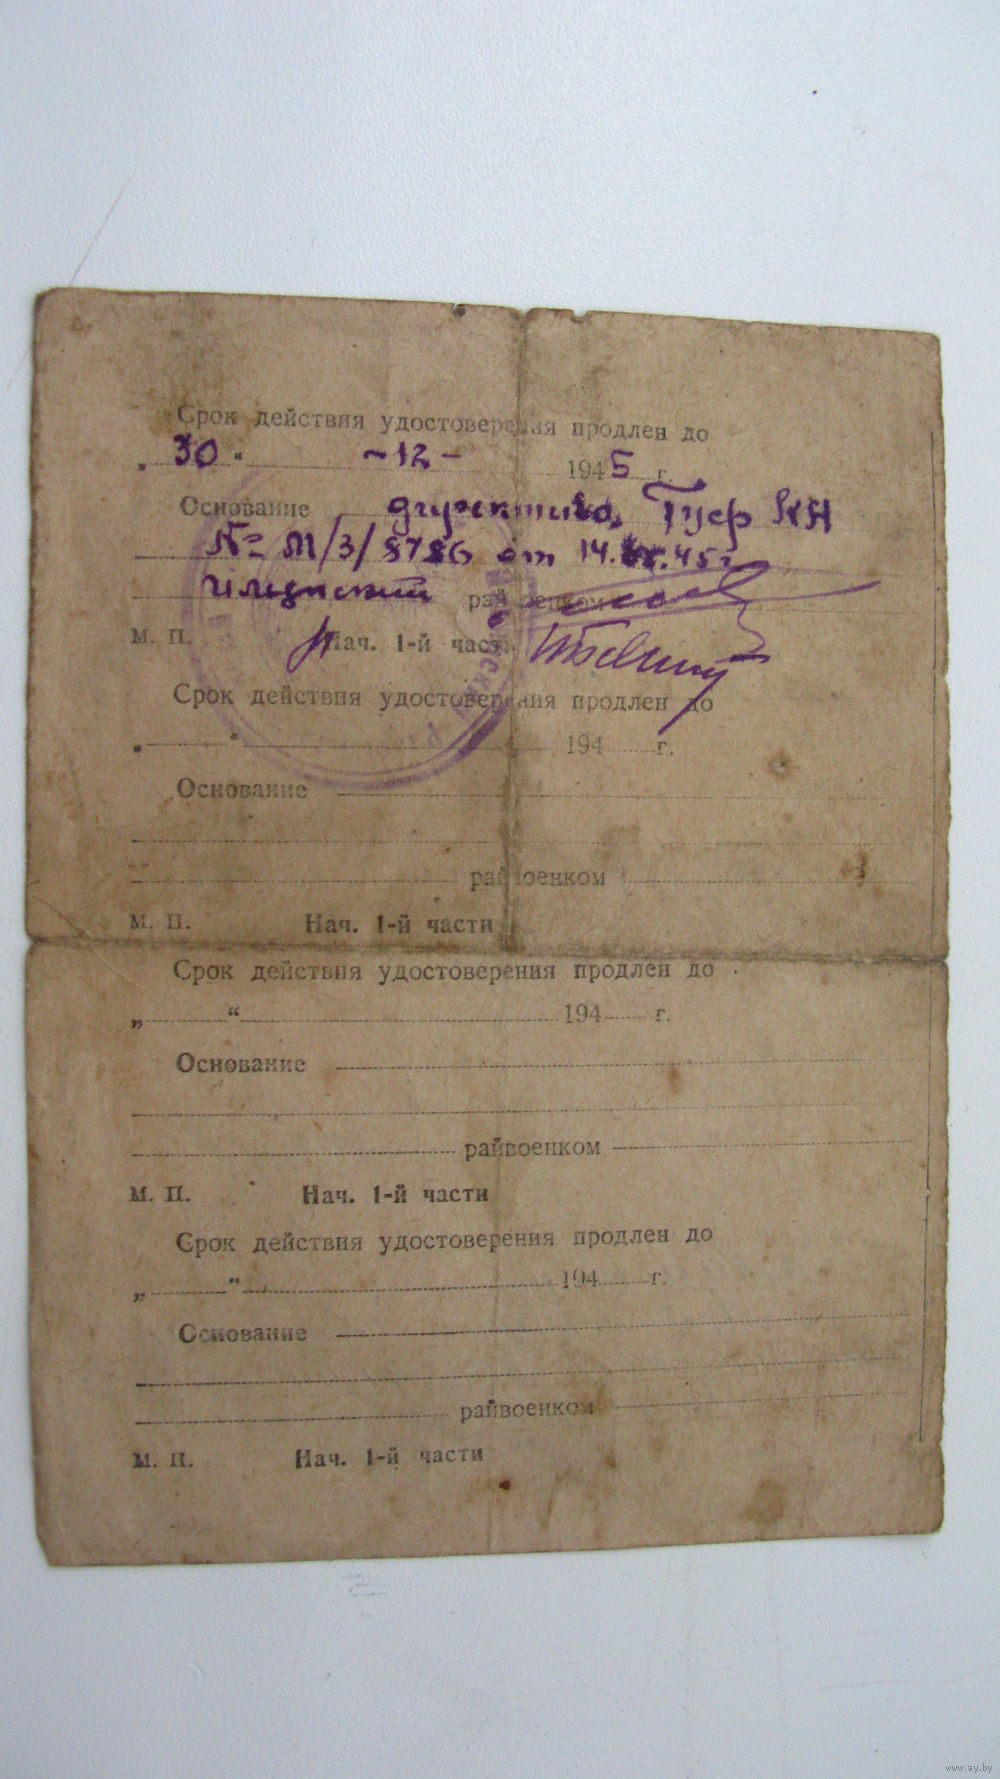 Срок действия удостоверения продлен до
„30“ -12- 1945 г.
Основание директива Гуф КА
№ М/3/8786 от 14. .45г
райвоенком
М. П. Нач. 1-й части
Срок действия удостоверения продлен до
„ “ 194 г.
Основание
райвоенком
М. П. Нач. 1-й части
Срок действия удостоверения продлен до
„ “ 194 г.
Основание
райвоенком
М. П. Нач. 1-й части
Срок действия удостоверения продлен до
„ “ 194 г.
Основание
райвоенком
М. П. Нач. 1-й части
www.ay.by